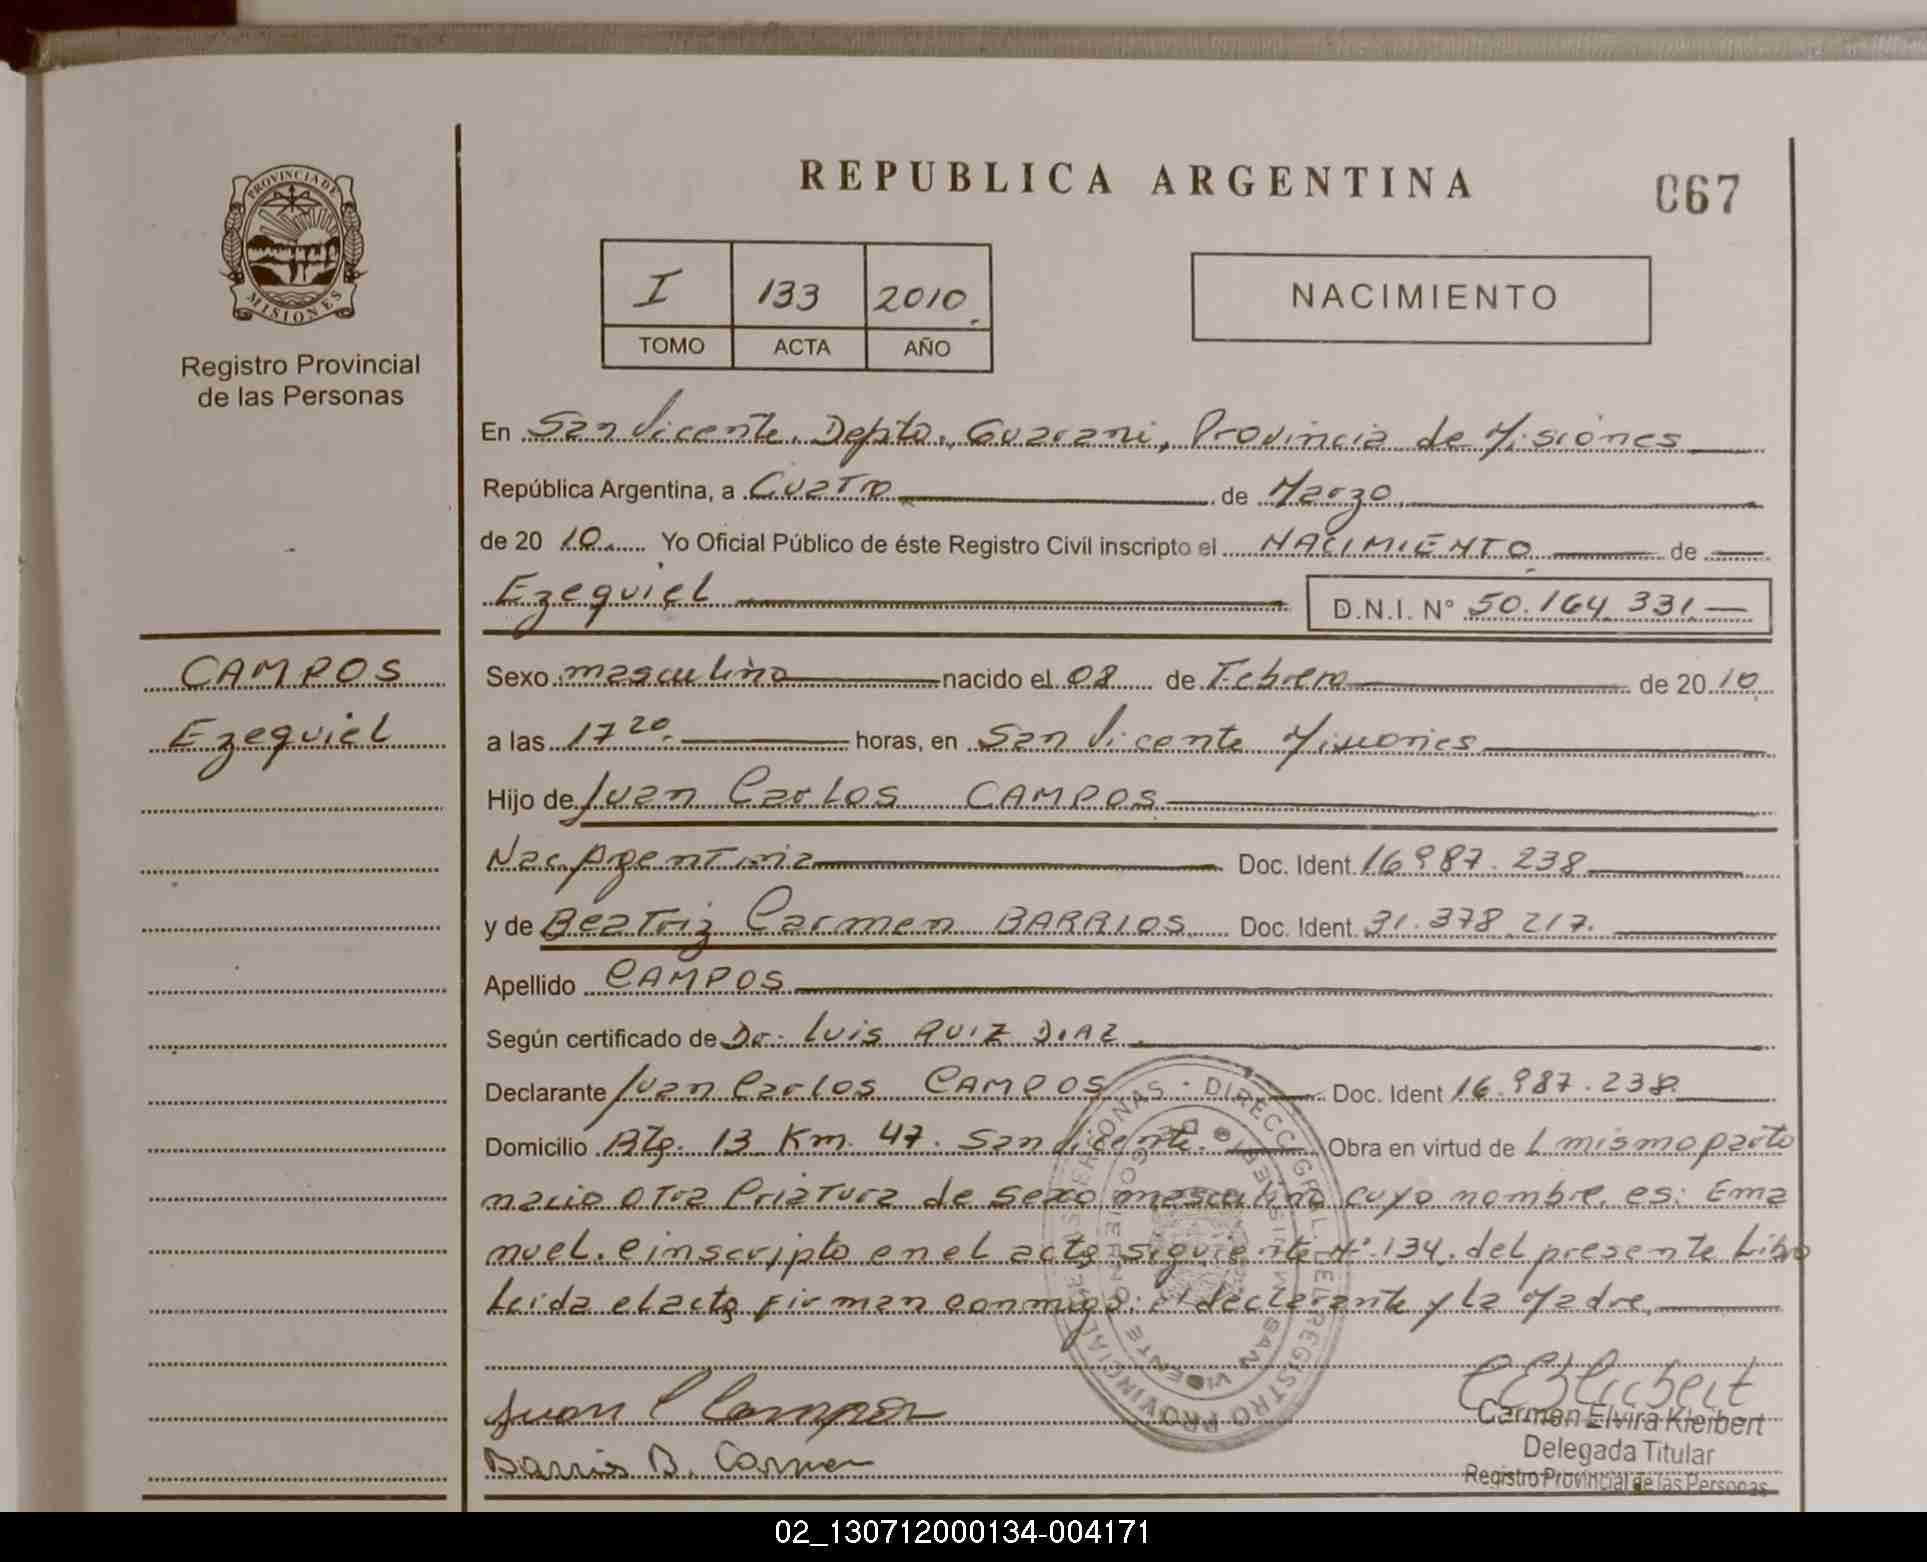 PROVINCIA DE
MISIONES
Registro Provincial
de las Personas
REPUBLICA ARGENTINA
067
I 133 2010.
TOMO ACTA AÑO
NACIMIENTO
En San Vicente, Depto. Guarani, Provincia de Misiones
República Argentina, a Cuatro de Marzo
de 20 10. Yo Oficial Público de éste Registro Civil inscripto el NACIMIENTO de
Ezequiel D.N.I. N° 50.164.331
CAMPOS
Ezequiel
Sexo masculino nacido el 08 de Febrero de 20 10
a las 17 20. horas, en San Vicente Misiones
Hijo de Juan Carlos CAMPOS
Nac Argentina Doc. Ident. 16.987.238
y de Beatriz Carmen BARRIOS Doc. Ident. 31.378.217.
Apellido CAMPOS
Según certificado de Dr. Luis RUIZ DIAZ
Declarante Juan Carlos CAMPOS Doc. Ident 16.987.238
Domicilio Km. 47. San Vicente. Obra en virtud de L mismo parto
nacio otra Criatura de sexo masculino cuyo nombre es: Ema
nuel. e inscripto en el acta siguiente N° 134. del presente Libro
Leida el acta firman conmigo: el declarante y la Madre
DIRECC. GRAL. DEL REGISTRO PROVINCIAL DE LAS PERSONAS
SAN VICENTE
Juan C Campos
Barrios B. Carmen
Carmen Elvira Kleibert
Delegada Titular
Registro Provincial de las Personas
02_130712000134-004171